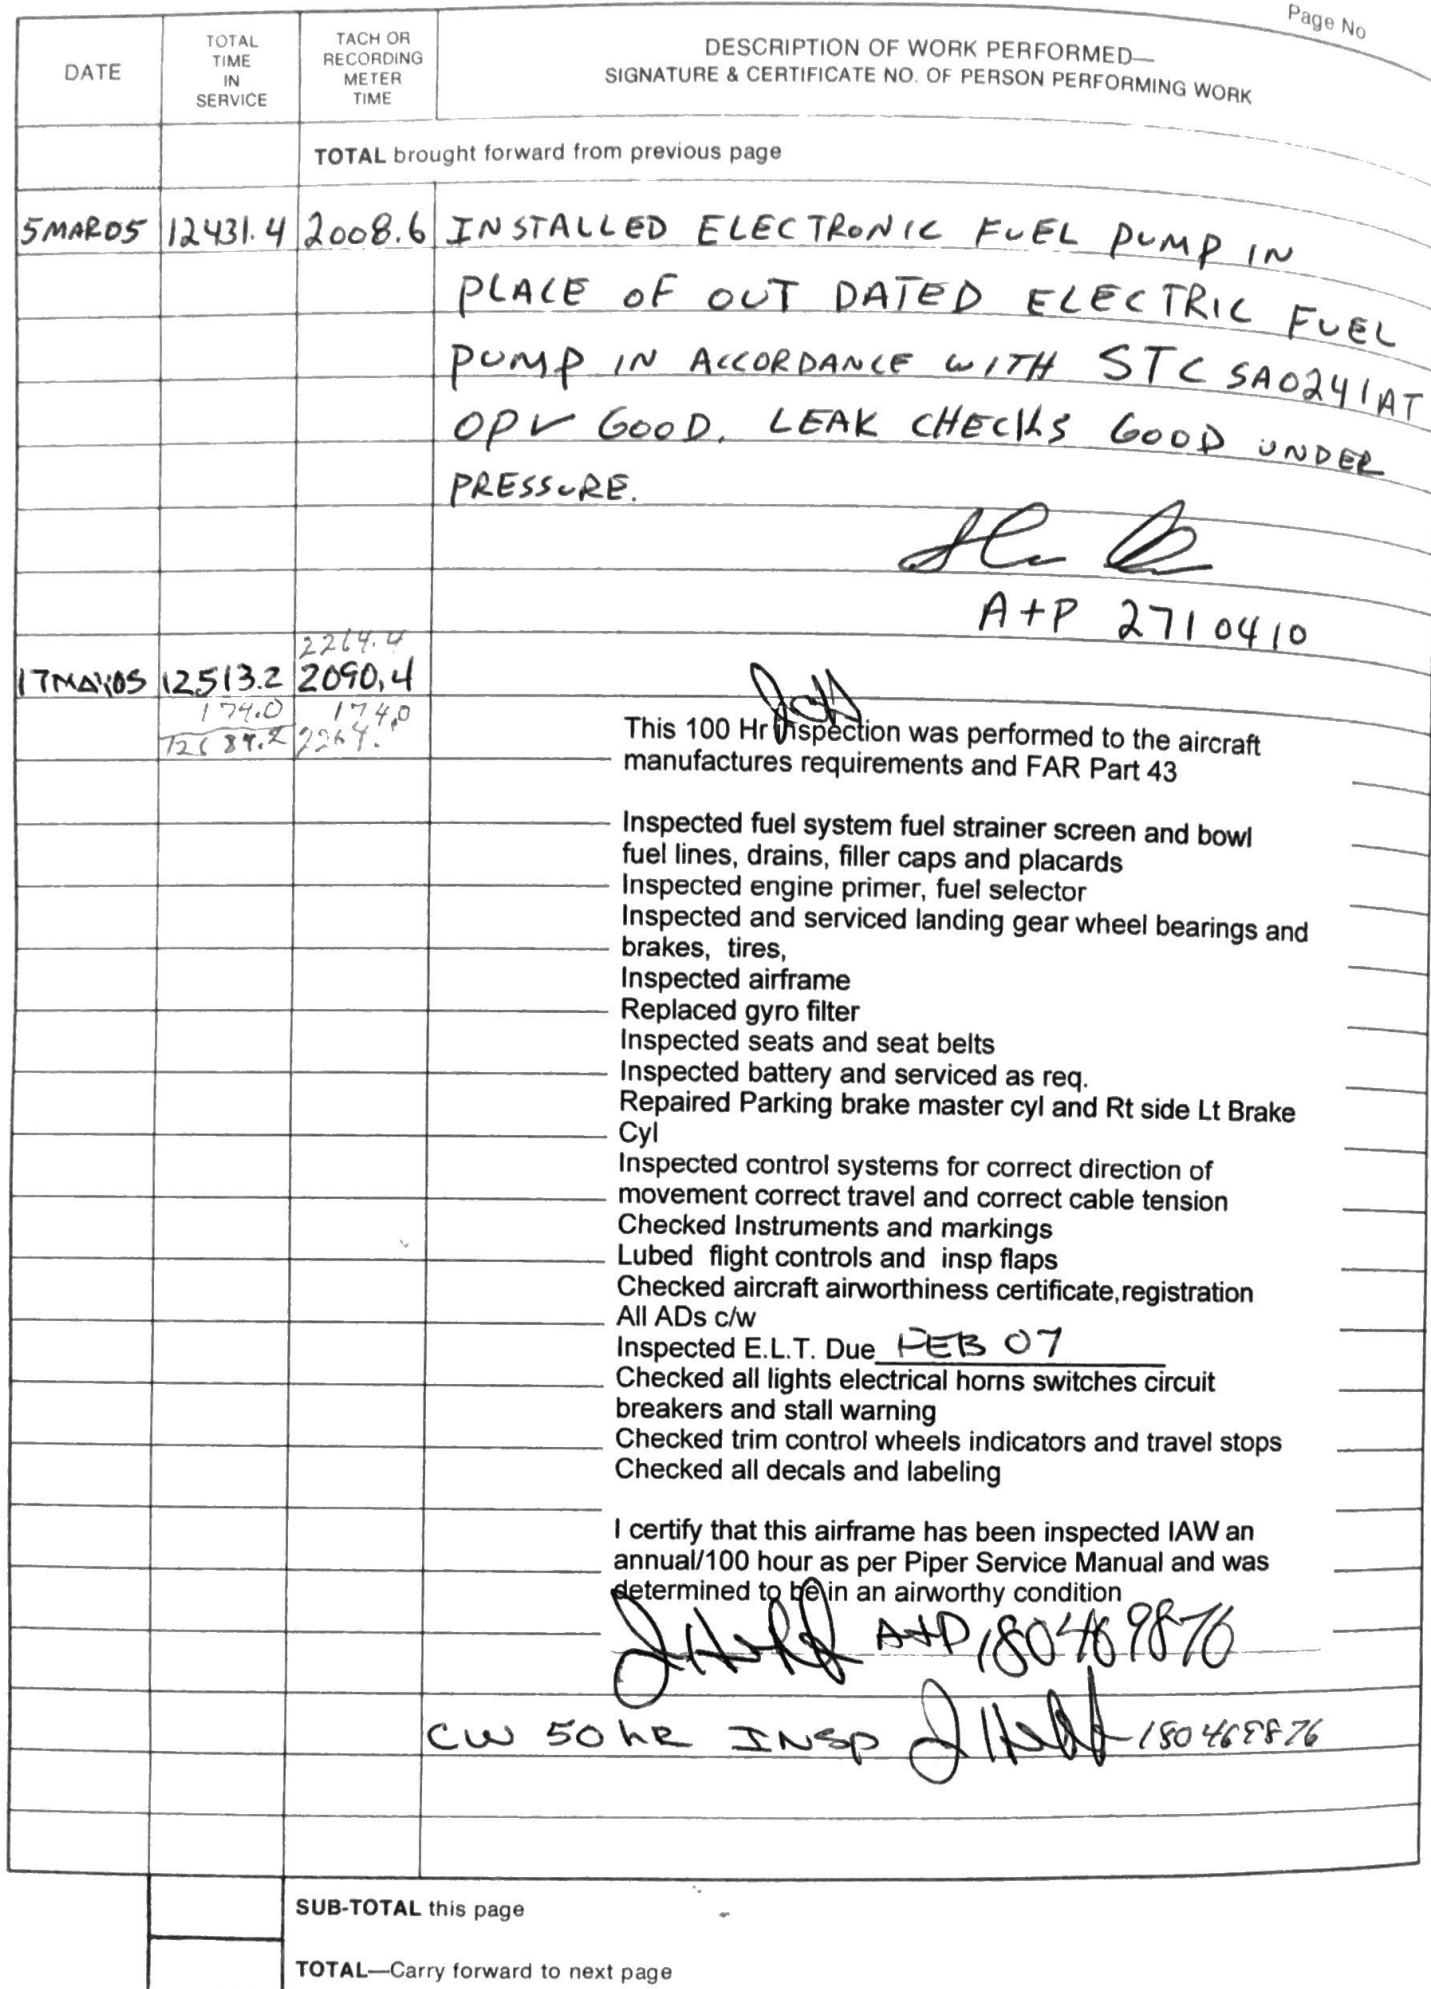 Page No
DATE
TOTAL
TIME
IN
SERVICE
TACH OR
RECORDING
METER
TIME
DESCRIPTION OF WORK PERFORMED—
SIGNATURE & CERTIFICATE NO. OF PERSON PERFORMING WORK
TOTAL brought forward from previous page
5MAR05 12431.4 2008.6 INSTALLED ELECTRONIC FUEL PUMP IN
PLACE OF OUT DATED ELECTRIC FUEL
PUMP IN ACCORDANCE WITH STC SA0241AT
OPV GOOD. LEAK CHECKS GOOD UNDER
PRESSURE.
A+P 2710410
2264.4
12513.2 2090.4
174.0 174.0
2264.
This 100 Hr inspection was performed to the aircraft
manufactures requirements and FAR Part 43
Inspected fuel system fuel strainer screen and bowl
fuel lines, drains, filler caps and placards
Inspected engine primer, fuel selector
Inspected and serviced landing gear wheel bearings and
brakes, tires,
Inspected airframe
Replaced gyro filter
Inspected seats and seat belts
Inspected battery and serviced as req.
Repaired Parking brake master cyl and Rt side Lt Brake
Cyl
Inspected control systems for correct direction of
movement correct travel and correct cable tension
Checked Instruments and markings
Lubed flight controls and insp flaps
Checked aircraft airworthiness certificate,registration
All ADs c/w
Inspected E.L.T. Due FEB 07
Checked all lights electrical horns switches circuit
breakers and stall warning
Checked trim control wheels indicators and travel stops
Checked all decals and labeling
I certify that this airframe has been inspected IAW an
annual/100 hour as per Piper Service Manual and was
determined to be in an airworthy condition
A+P 180469876
CW 50 hR INSP 180469876
SUB-TOTAL this page
TOTAL—Carry forward to next page